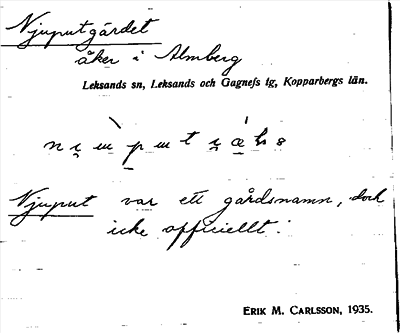 Njuputgärdet
åker i Almberg
Leksands sn, Leksands och Gagnefs tg, Kopparbergs län.
Njuput var ett gårdsnamn, dock
icke officiellt.
ERIK M. CARLSSON, 1935.